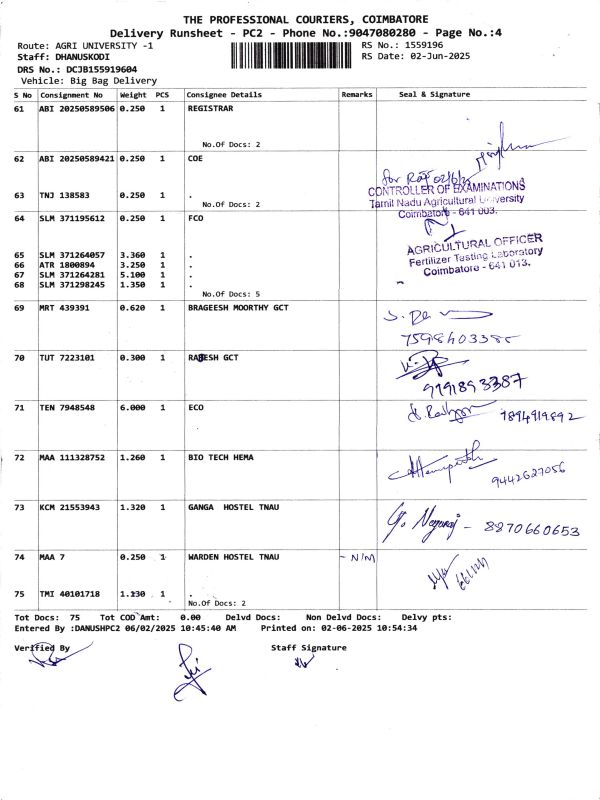 THE PROFESSIONAL COURIERS, COIMBATORE
Delivery Runsheet - PC2 - Phone No.:9047080280 - Page No.:4
Route: AGRI UNIVERSITY -1
RS No.: 1559196
Staff: DHANUSKODI
RS Date: 02-Jun-2025
DRS No.: DCJB155919604
Vehicle: Big Bag Delivery
S No Consignment No Weight PCS Consignee Details Remarks Seal & Signature
61 ABI 20250589506 0.250 1 REGISTRAR
No.Of Docs: 2
62 ABI 20250589421 0.250 1 COE
for
63 TNJ 138583 0.250 1 .
No.Of Docs: 2
CONTROLLER OF EXAMINATIONS
Tamil Nadu Agricultural University
Coimbatore - 641 003.
64 SLM 371195612 0.250 1 FCO
AGRICULTURAL OFFICER
Fertilizer Testing Laboratory
Coimbatore - 641 013.
65 SLM 371264057 3.360 1 .
66 ATR 1800894 3.250 1 .
67 SLM 371264281 5.100 1 .
68 SLM 371298245 1.350 1 .
No.Of Docs: 5
69 MRT 439391 0.620 1 BRAGEESH MOORTHY GCT
7598403385
70 TUT 7223101 0.300 1 RAJESH GCT
9191893387
71 TEN 7948548 6.000 1 ECO
7894919892
72 MAA 111328752 1.260 1 BIO TECH HEMA
9442627056
73 KCM 21553943 1.320 1 GANGA HOSTEL TNAU
Nagaraj - 8870660653
74 MAA 7 0.250 1 WARDEN HOSTEL TNAU - N/M
75 TMI 40101718 1.130 1 .
No.Of Docs: 2
Tot Docs: 75 Tot COD Amt: 0.00 Delvd Docs: Non Delvd Docs: Delvy pts:
Entered By :DANUSHPC2 06/02/2025 10:45:40 AM Printed on: 02-06-2025 10:54:34
Verified By
Staff Signature